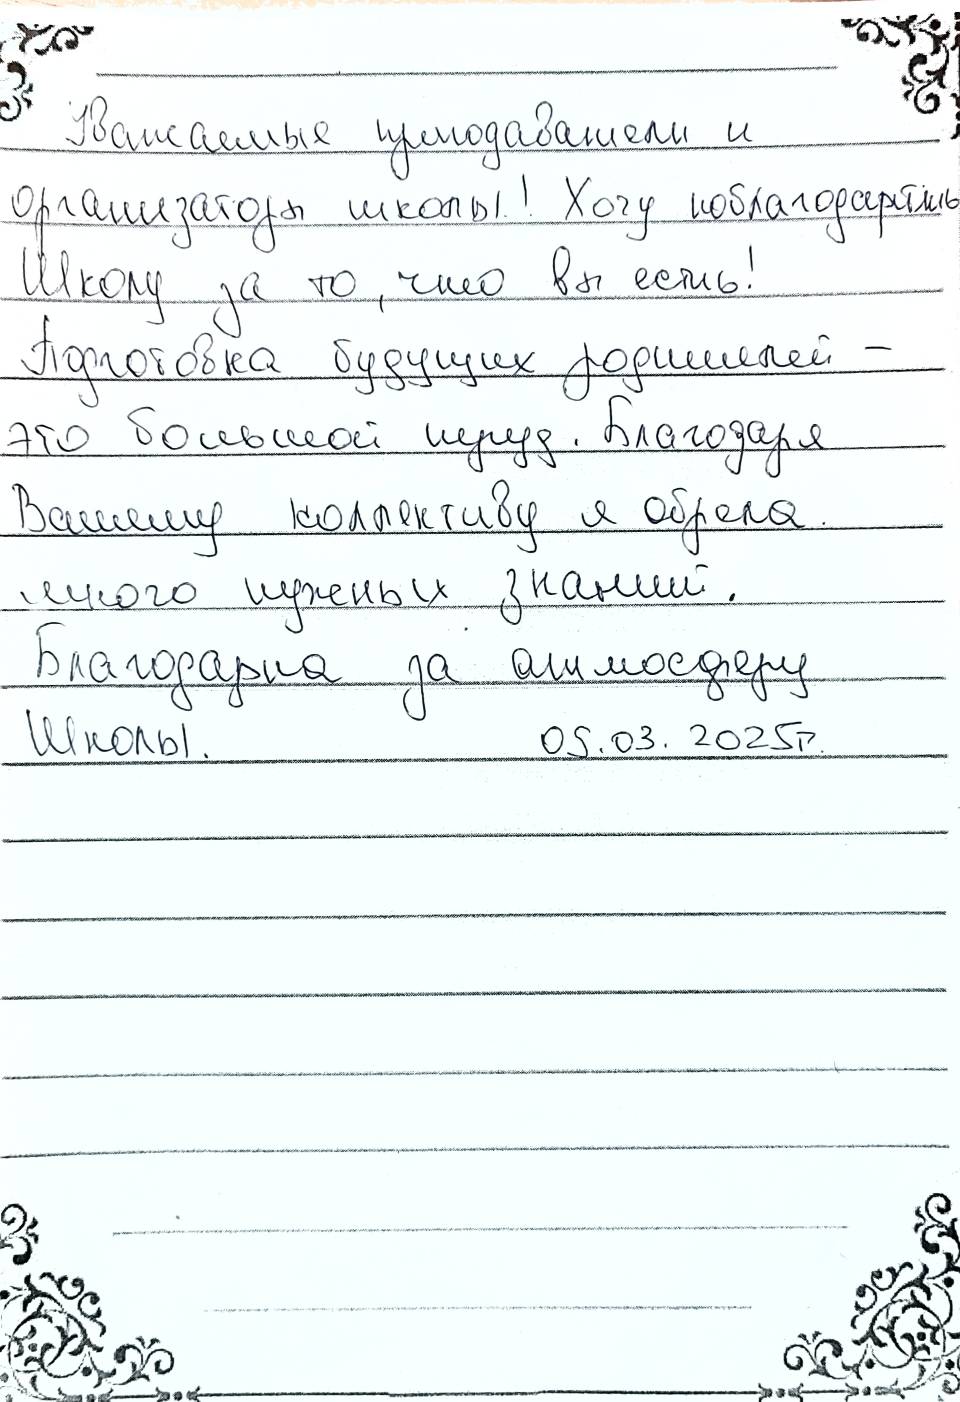 Уважаемые преподаватели и
организаторы школы! Хочу поблагодарить
Школу за то, что вы есть!
Подготовка будущих родителей -
это большой труд. Благодаря
Вашему коллективу я обрела
много нужных знаний.
Благодарна за атмосферу
Школы. 05.03.2025г.